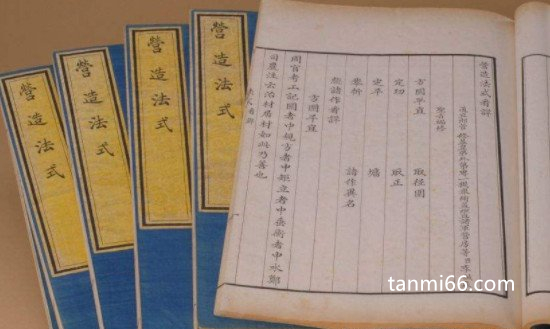 營造法式
營造法式
營造法式
營造法式
營造法式看詳
通直郎管修蓋皇弟外第專一提舉修蓋班直諸軍營房等臣李誡奉
聖旨編修
方圜平直 取徑圍
定功 取正
定平 墻
舉折 諸作異名
總諸作看詳
方圜平直
周官考工記圜者中規方者中矩立者中垂衡者中水鄭
司農注云治材居材如此乃善也
tanmi66.com